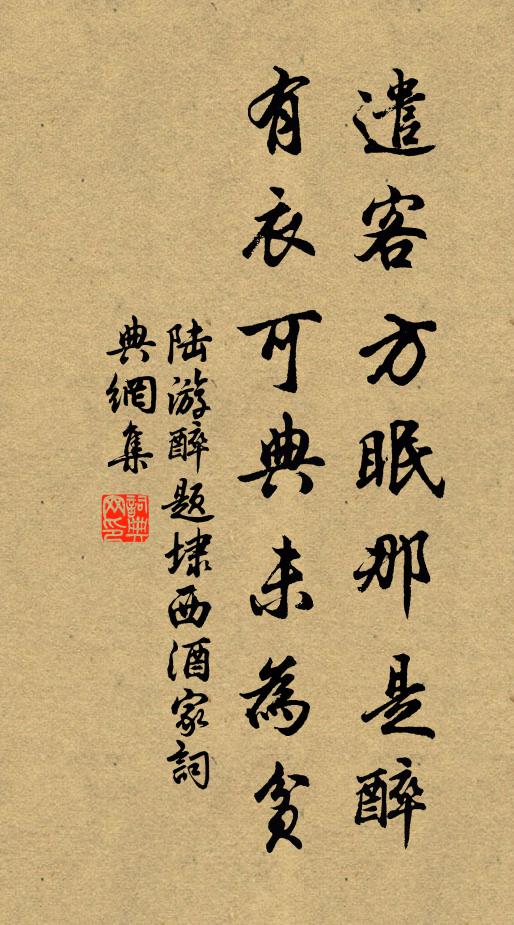 遣客方眠那是醉
有衣可典未為貧
陆游醉题埭西酒家詞
典網集
詞典網印